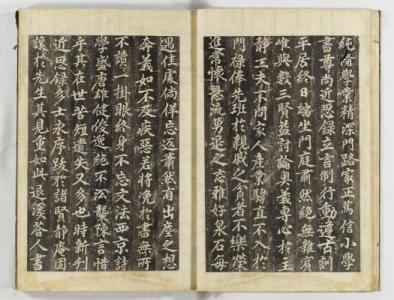 純會學業精深門路家正萬信小學
書尊尚近思錄立言制行動遵古訓
平居終日端坐門庭肅然絕無雜賓
唯與數三賢益討論奧義專心於主
靜工夫不問家人產業騶直不入於
門祿俸先班於親戚之貧者不樂榮
進常懷急流勇退之志雅好泉石每
遇佳處倘佯忘返蕭然有出塵之想
奔義如不及疾惡若將浼於書無所
不讀一掛眼終身不忘文法西京詩
學盛唐雄健俊逸絕不沿襲陳言惜
乎其在世苦短遺失又多也時新刊
近思錄多士求序跋於諸賢靜庵固
讓於先生其見重如此退溪答人書